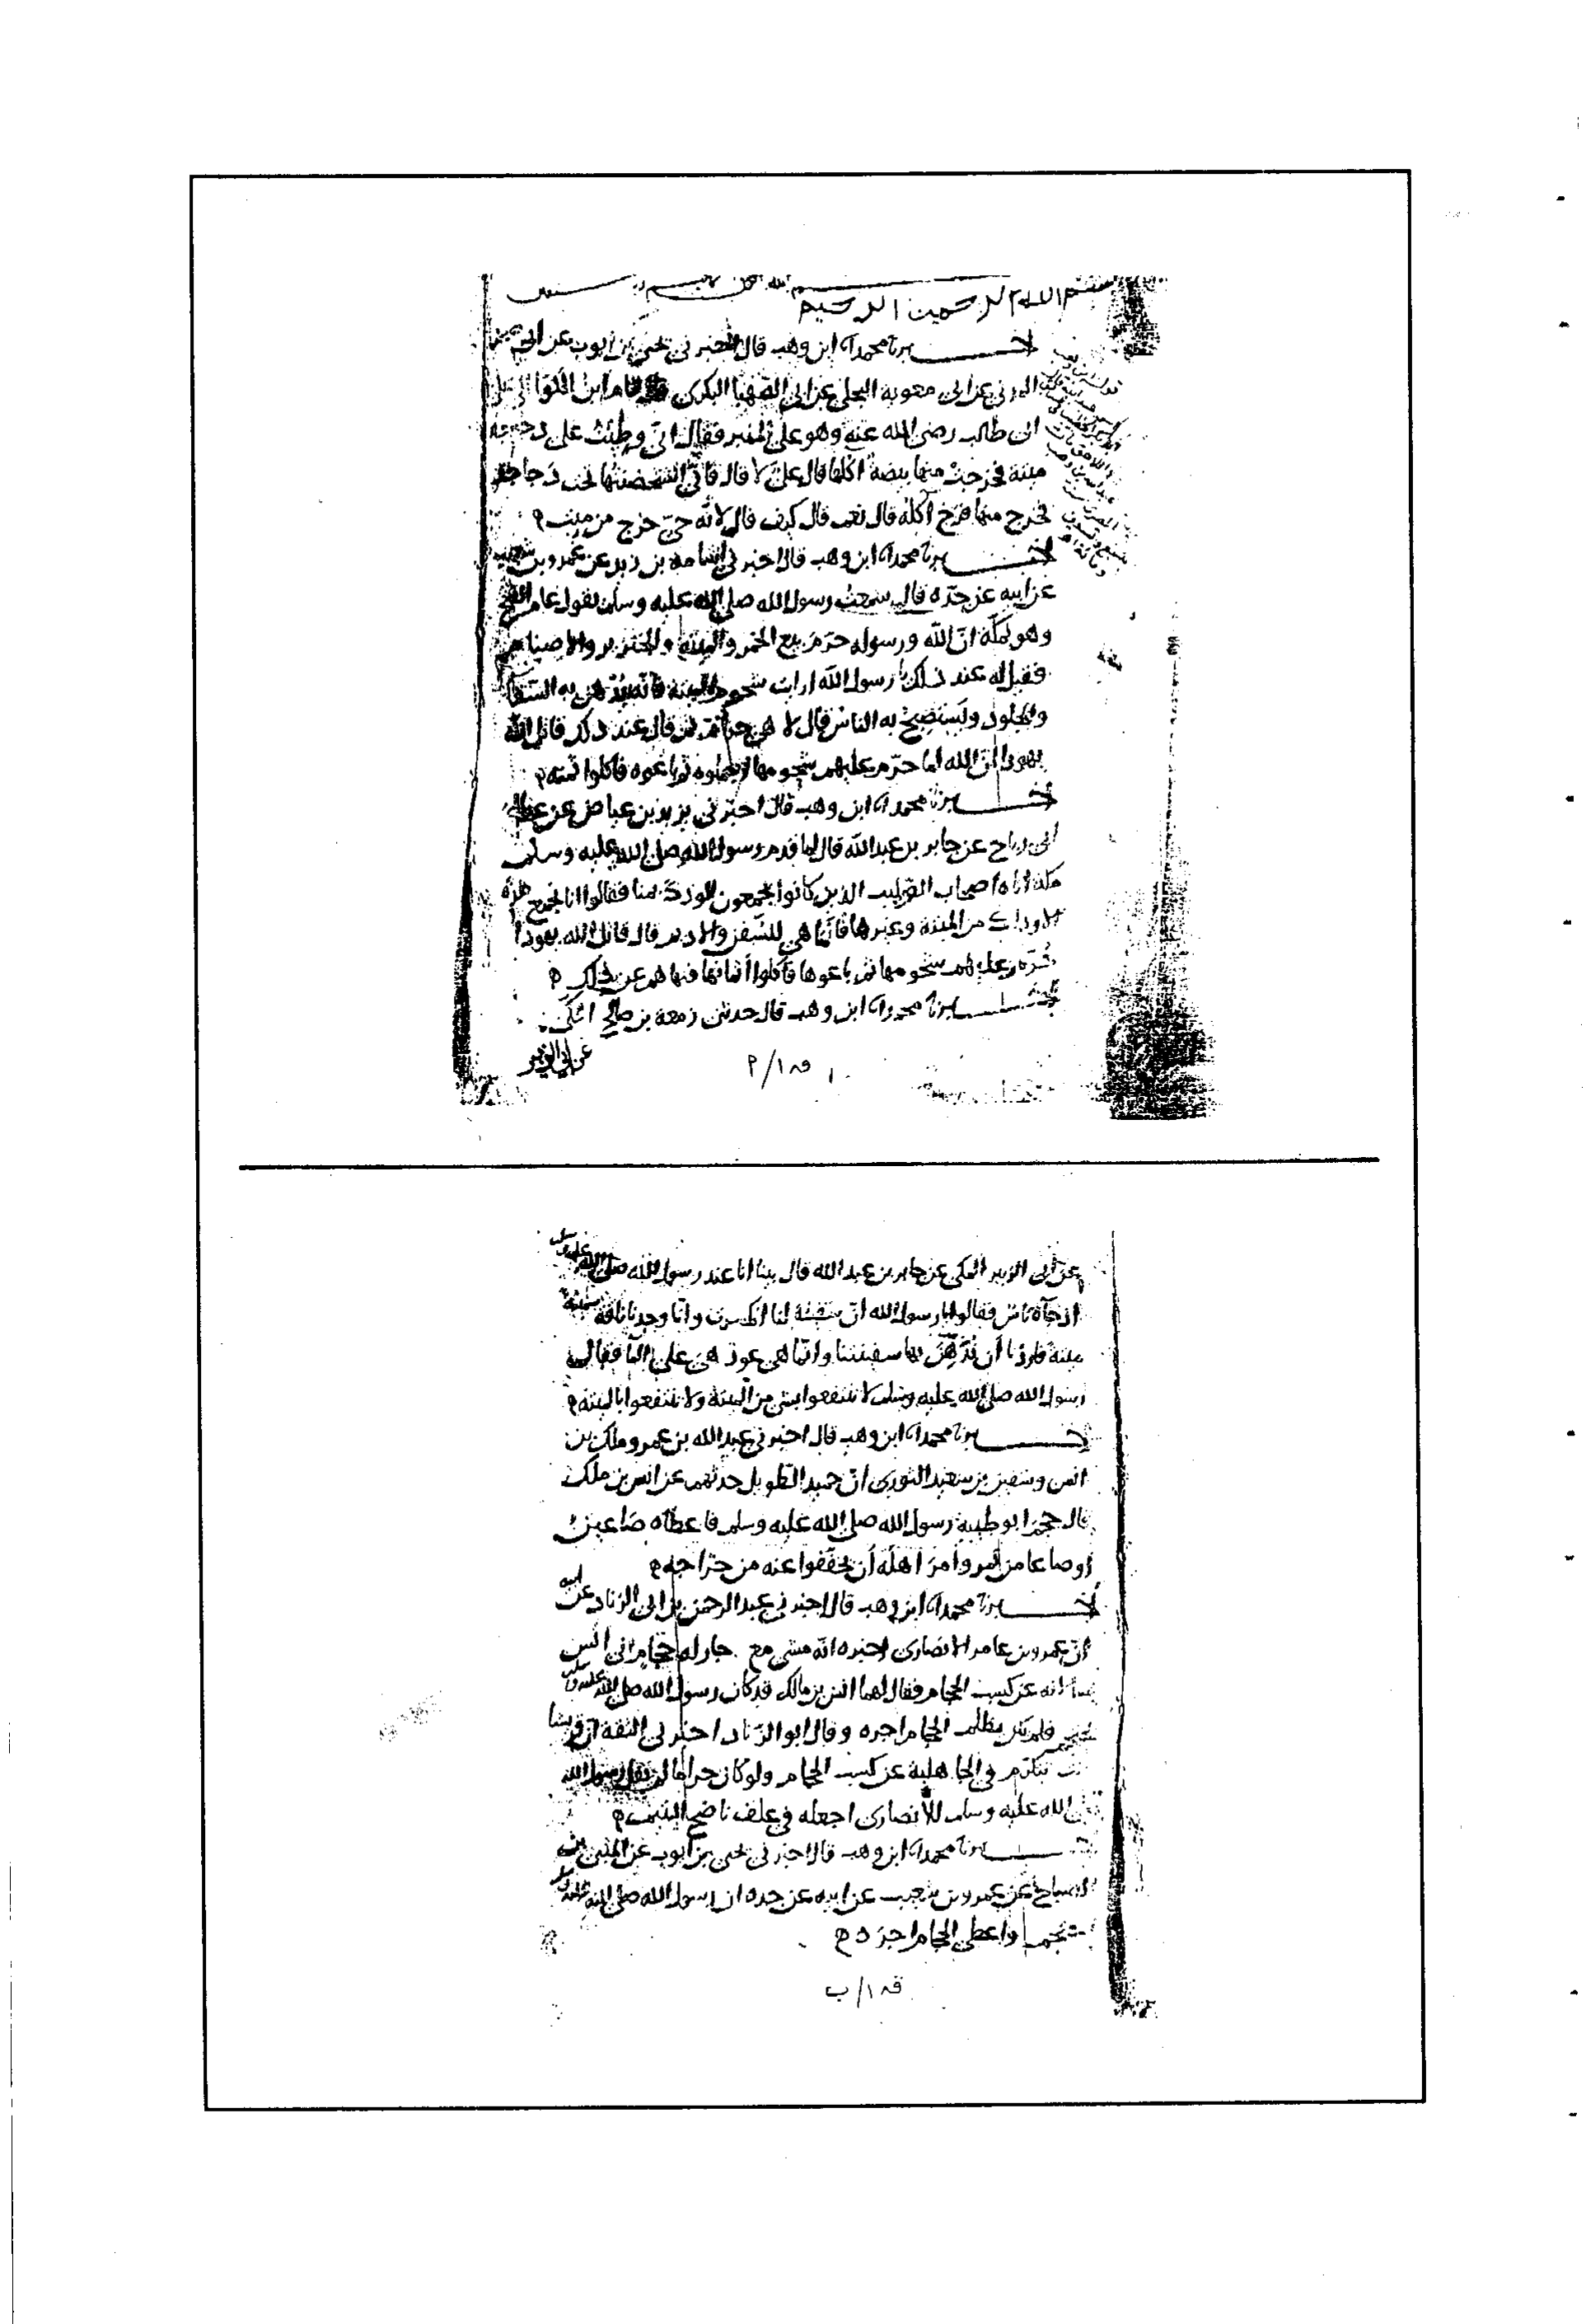 بسم الله الرحمن الرحيم
اخبرنا محمد انا ابن وهب قال اخبرني يحيى بن ايوب عن ابي
عن ابي معوية البجلي عن ابي الصهبا البكري قام ابن الكوا الى علي
ابن طالب رضي الله عنه وهو على المنبر فقال اني وطئت على دجاجة
ميتة فخرجت منها بيضة آكلها قال علي لا قال فاني استحضنتها تحت دجاجة
فخرج منها فرخ آكله قال نعم قال كيف قال لانه حي خرج من ميت
اخبرنا محمد انا ابن وهب قال اخبرني اسامة بن زيد عن عمرو بن شعيب
عن ابيه عن جده قال سمعت رسول الله صلى الله عليه وسلم يقول عام الفتح
وهو بمكة ان الله ورسوله حرم بيع الخمر والميتة والخنزير والاصنام
فقيل له عند ذلك يا رسول الله ارايت شحوم الميتة فانه يدهن به السقا
والجلود ويستصبح به الناس قال لا هي حرام ثم قال عند ذلك قاتل الله
يهودا ان الله لما حرم عليهم شحومها اجملوه ثم باعوه فاكلوا ثمنه
اخبرنا محمد انا ابن وهب قال اخبرني يزيد بن عياض عن عطا بن
ابي رباح عن جابر بن عبد الله قال لما قدم رسول الله صلى الله عليه وسلم
مكة اتاه اصحاب الصليب الذين كانوا يجمعون الودك بمنا فقالوا انا نجمع هذه
الاوداك من الميتة وغيرها فانما هي للسفن والادم قال قاتل الله يهودا
حرم عليهم شحومها ثم باعوها فاكلوا اثمانها فنهاهم عن ذلك
اخبرنا محمد انا ابن وهب قال حدثني زمعة بن صالح المكي
عن ابي الزبير
ق ١/أ
عن ابي الزبير المكي عن جابر بن عبد الله قال بينا انا عند رسول الله صلى الله عليه وسلم
اذ جآه ناس فقالوا يا رسول الله ان سفينة لنا انكسرت وانا وجدنا ناقة سمينة
ميتة فاردنا ان ندهن بها سفينتنا وانما هي عود هي على المآ فقال
رسول الله صلى الله عليه وسلم لا تنتفعوا بشي من الميتة ولا تنتفعوا بالميتة
اخبرنا محمد انا ابن وهب قال اخبرني عبد الله بن عمر وملك بن
انس وسفين بن سعيد الثوري ان حميد الطويل حدثهم عن انس بن ملك
قال حجم ابو طيبة رسول الله صلى الله عليه وسلم فاعطاه صاعين
او صاعا من تمر وامر اهله ان يخففوا عنه من خراجه
اخبرنا محمد انا ابن وهب قال اخبرني عبد الرحمن بن ابي الزناد عن ابيه
ان عمرو بن عامر الانصاري اخبره انه مشى مع جار له حجام الى انس
يسالانه عن كسب الحجام فقال لهما انس بن مالك قد كان رسول الله صلى الله عليه وسلم
يحتجم فلم يكن يظلم الحجام اجره وقال ابو الزناد اخبرني الثقة ان قريشا
كانت تتكرم في الجاهلية عن كسب الحجام ولو كان حراما لم يقل رسول الله
صلى الله عليه وسلم للانصاري اجعله في علف ناضح اليتيم
اخبرنا محمد انا ابن وهب قال اخبرني يحيى بن ايوب عن المثنى بن
الصباح عن عمرو بن شعيب عن ابيه عن جده ان رسول الله صلى الله عليه وسلم
احتجم واعطى الحجام اجره
ق ١/ب